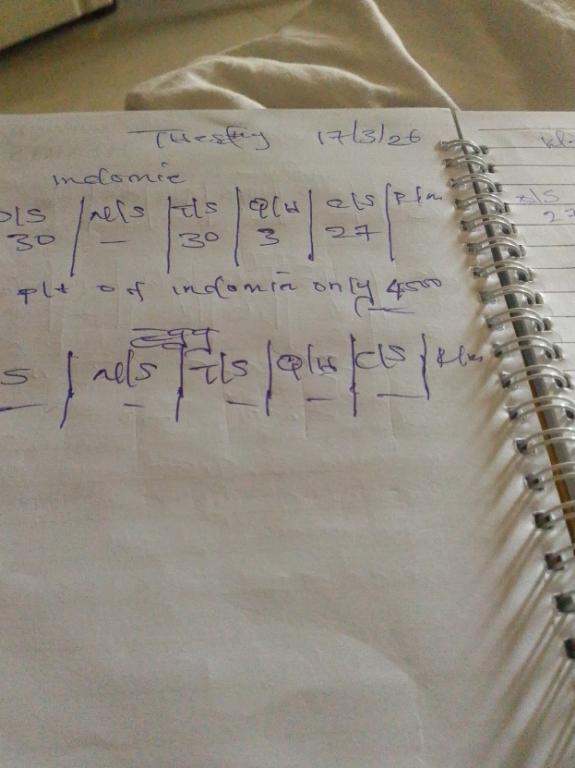 Tuesday 17/3/26
Indomie
O/S | N/S | T/S | Q/U | C/S |
30 | — | 30 | 3 | 27 |
plt of indomin only 4500
Egg
S | N/S | T/S | Q/U | C/S |
— | — | — | — | — |
S
27